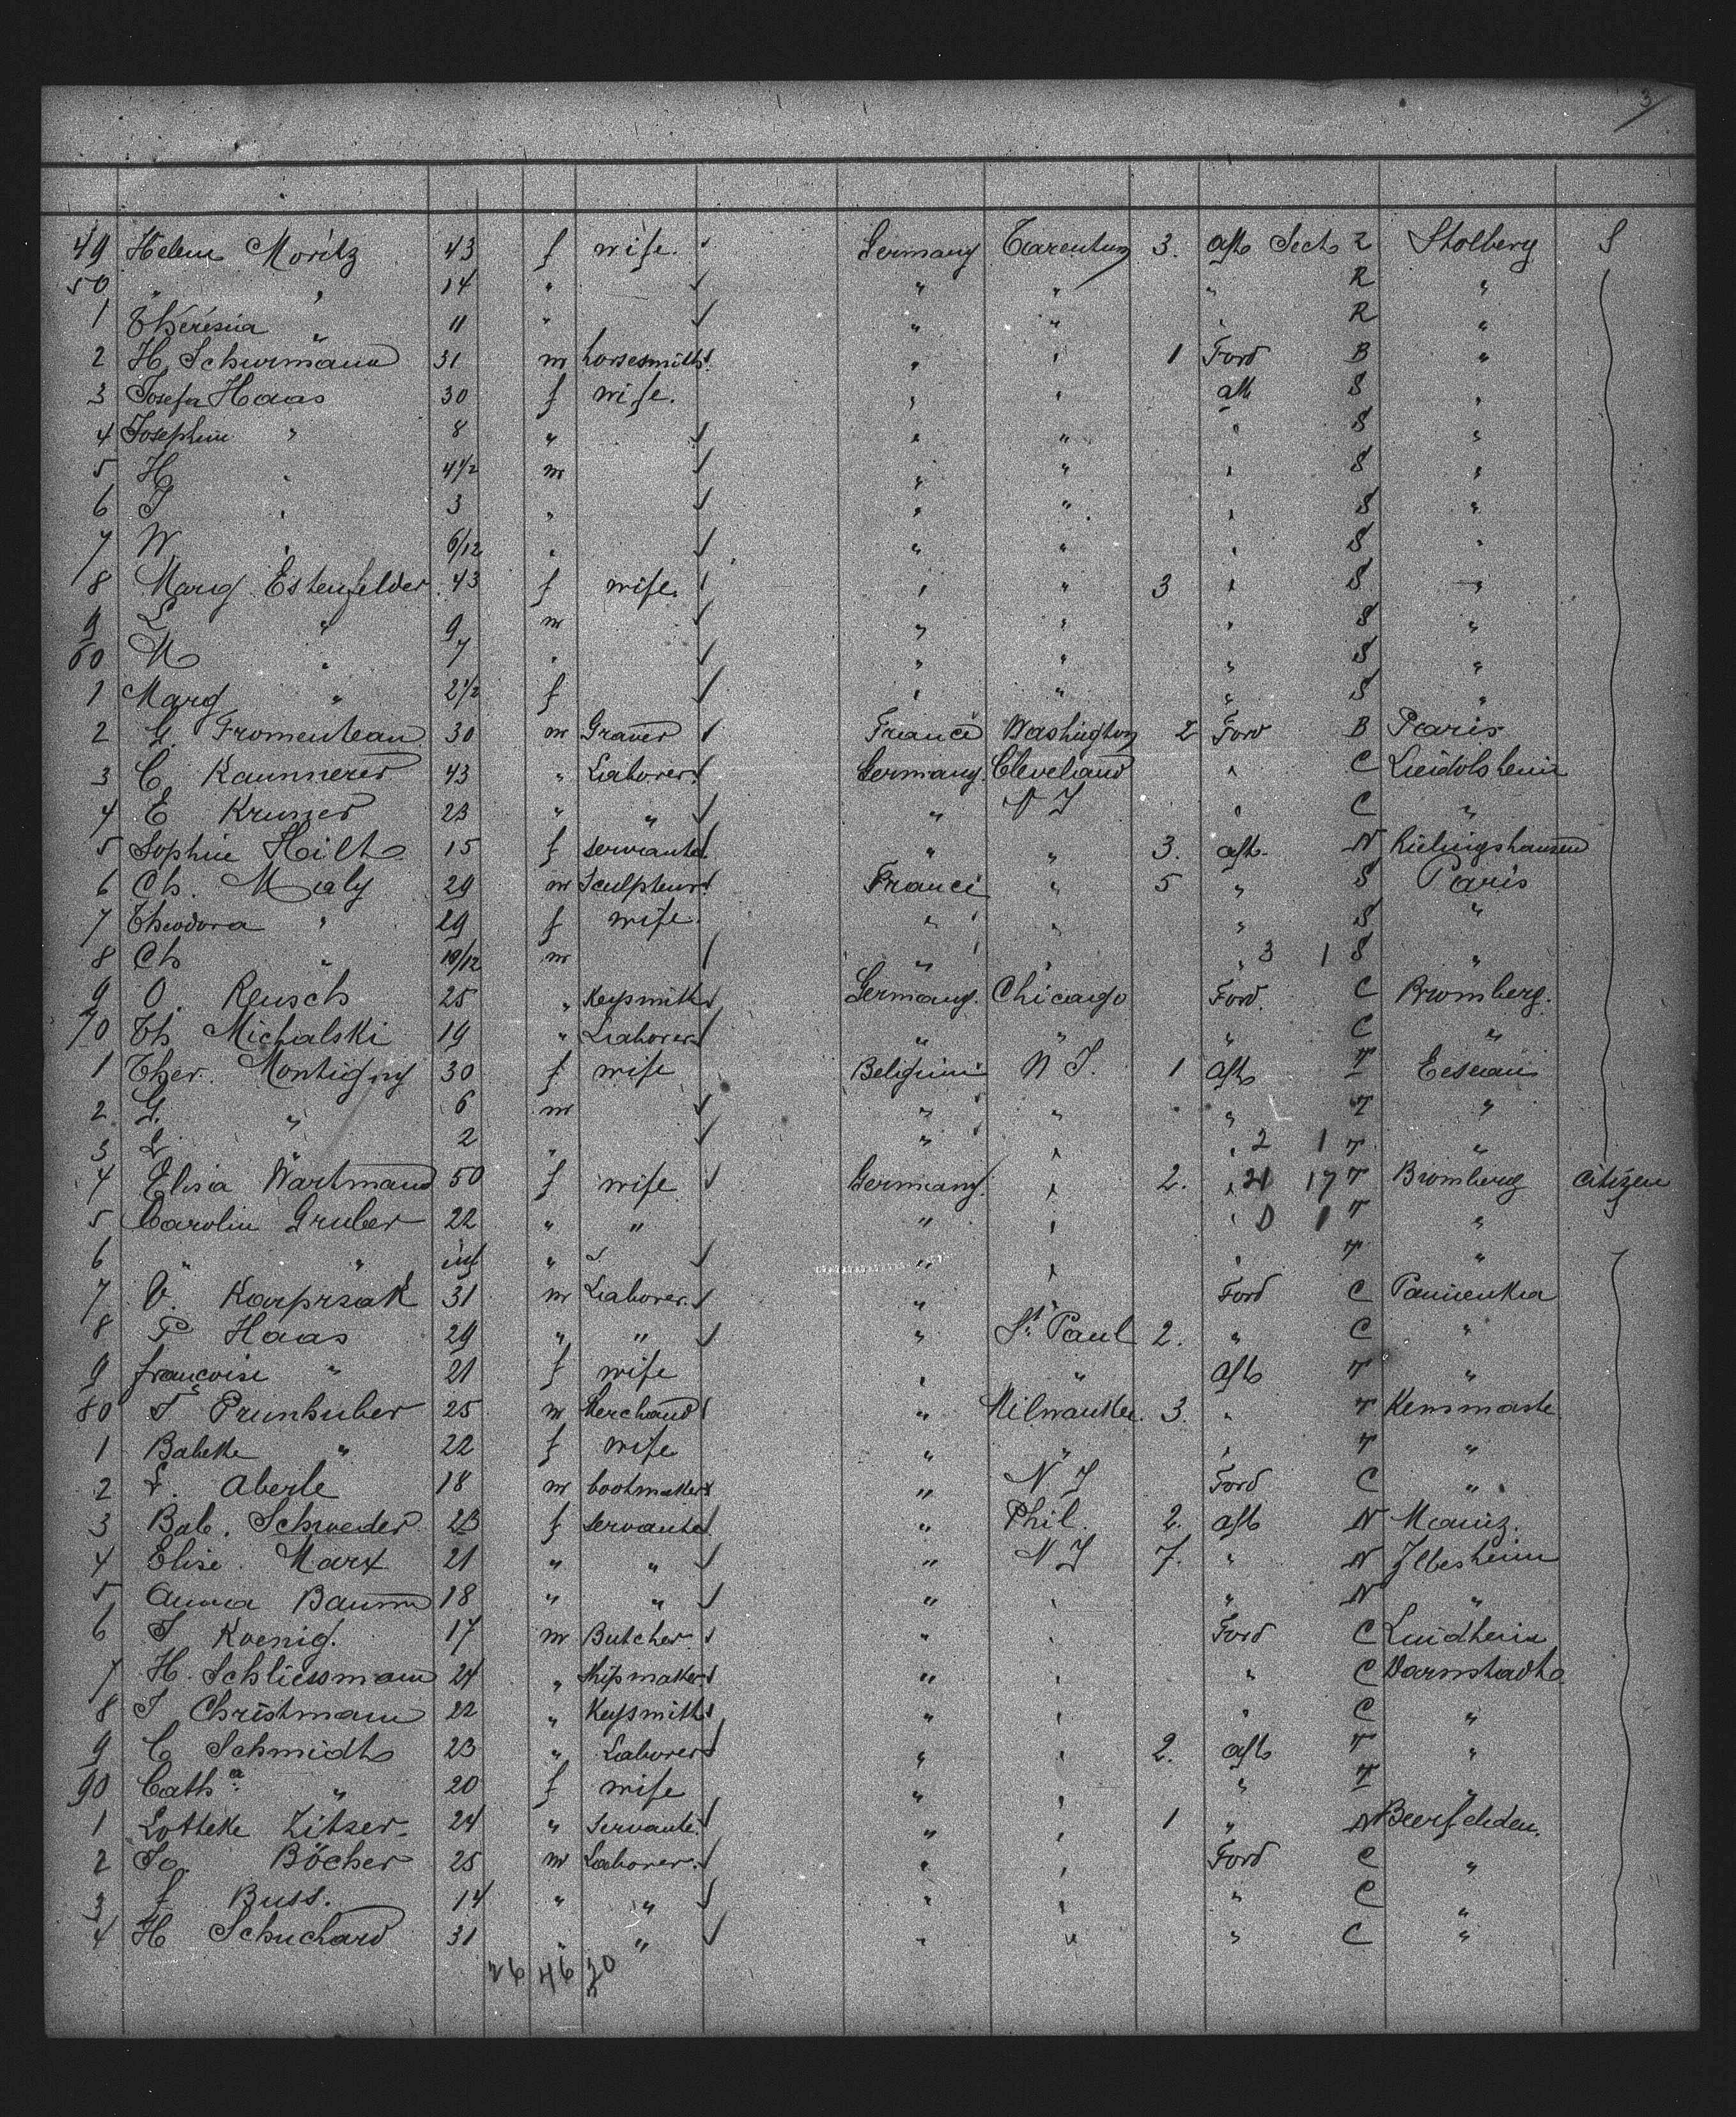 3
49 Helene Moritz 43 f wife. Germany Tarentum 3. aft Sect Z Stolberg S
50 " " 14 " " " " R "
1 Theresia " 11 " " " " R "
2 H. Schurmann 31 m horsesmith " " 1 Ford B "
3 Josefa Haas 30 f wife. " " aft S "
4 Josephine " 8 " " " " S "
5 H " 4 1/2 m " " " S "
6 J " 3 " " " " S "
7 W " 6/12 " " " " S "
8 Marg Estenfelder 43 f wife. " " 3 " S "
9 L " 9 m " " " S "
60 M " 7 " " " " S "
1 Marg " 2 1/2 f " " " S "
2 G. Fromenteau 30 m Graver France Washington 2 Ford B Paris
3 C. Kammerer 43 " Laborer Germany Cleveland " C Liedolsheim
4 E Kruner 23 " " " N Y " C "
5 Sophie Hilt 15 f servante " " 3. aft. N Rielingshausen
6 Ch. Maly 29 m Sculpteur France " 5 " S Paris
7 Theodora " 29 f wife. " " " S "
8 Ch " 10/12 m " " " 3 1 S "
9 O. Reusch 25 " Keysmith Germany. Chicago Ford. C Bromberg.
70 Th Michalski 19 " Laborer " " " C "
1 Ther. Montigny 30 f wife Belgium N Y. 1 aft T
2 G. " 6 m " " " T "
3 L " 2 " " " " 2 1 T "
4 Elisa Wartmann 50 f wife Germany. " 2. " 21 17 T Bromberg Citizen
5 Carolin Gruber 22 " " " " " D 1 T " S
6 " " inf " " " " T "
7 V. Karprzak 31 m Laborer. " " Ford C Panienka
8 P Haas 29 " " " St Paul 2. " C "
9 françoise " 21 f wife " " aft T "
80 J Prunhuber 25 m Merchand " Milwaukee. 3. " T
1 Babette " 22 f wife " " " T "
2 F. Aberle 18 m bootmaker " N Y Ford C "
3 Bab. Schroeder 23 f servante " Phil. 2. aft N Mainz.
4 Elise Marx 21 " " " N Y 7. " N Ilbesheim
5 Anna Baumn 18 " " " " " N "
6 J Koenig. 17 m Butcher " " Ford C Lindheim
7 H. Schliessmann 24 " Shipmaker " " " C Darmstadt
8 J Christmann 22 " Keysmith " " " C "
9 C Schmidt 23 " Laborer " " 2. aft T "
90 Cath.a " 20 f wife " " " T "
1 Lottche Zitzer. 24 " servante. " " 1 " N Beerfelden.
2 Jo. Böcher 25 m Laborer. " " Ford C "
3 f Buss. 14 " " " " " C "
4 H Schuchard 31 " " " " " C "
26 46 20